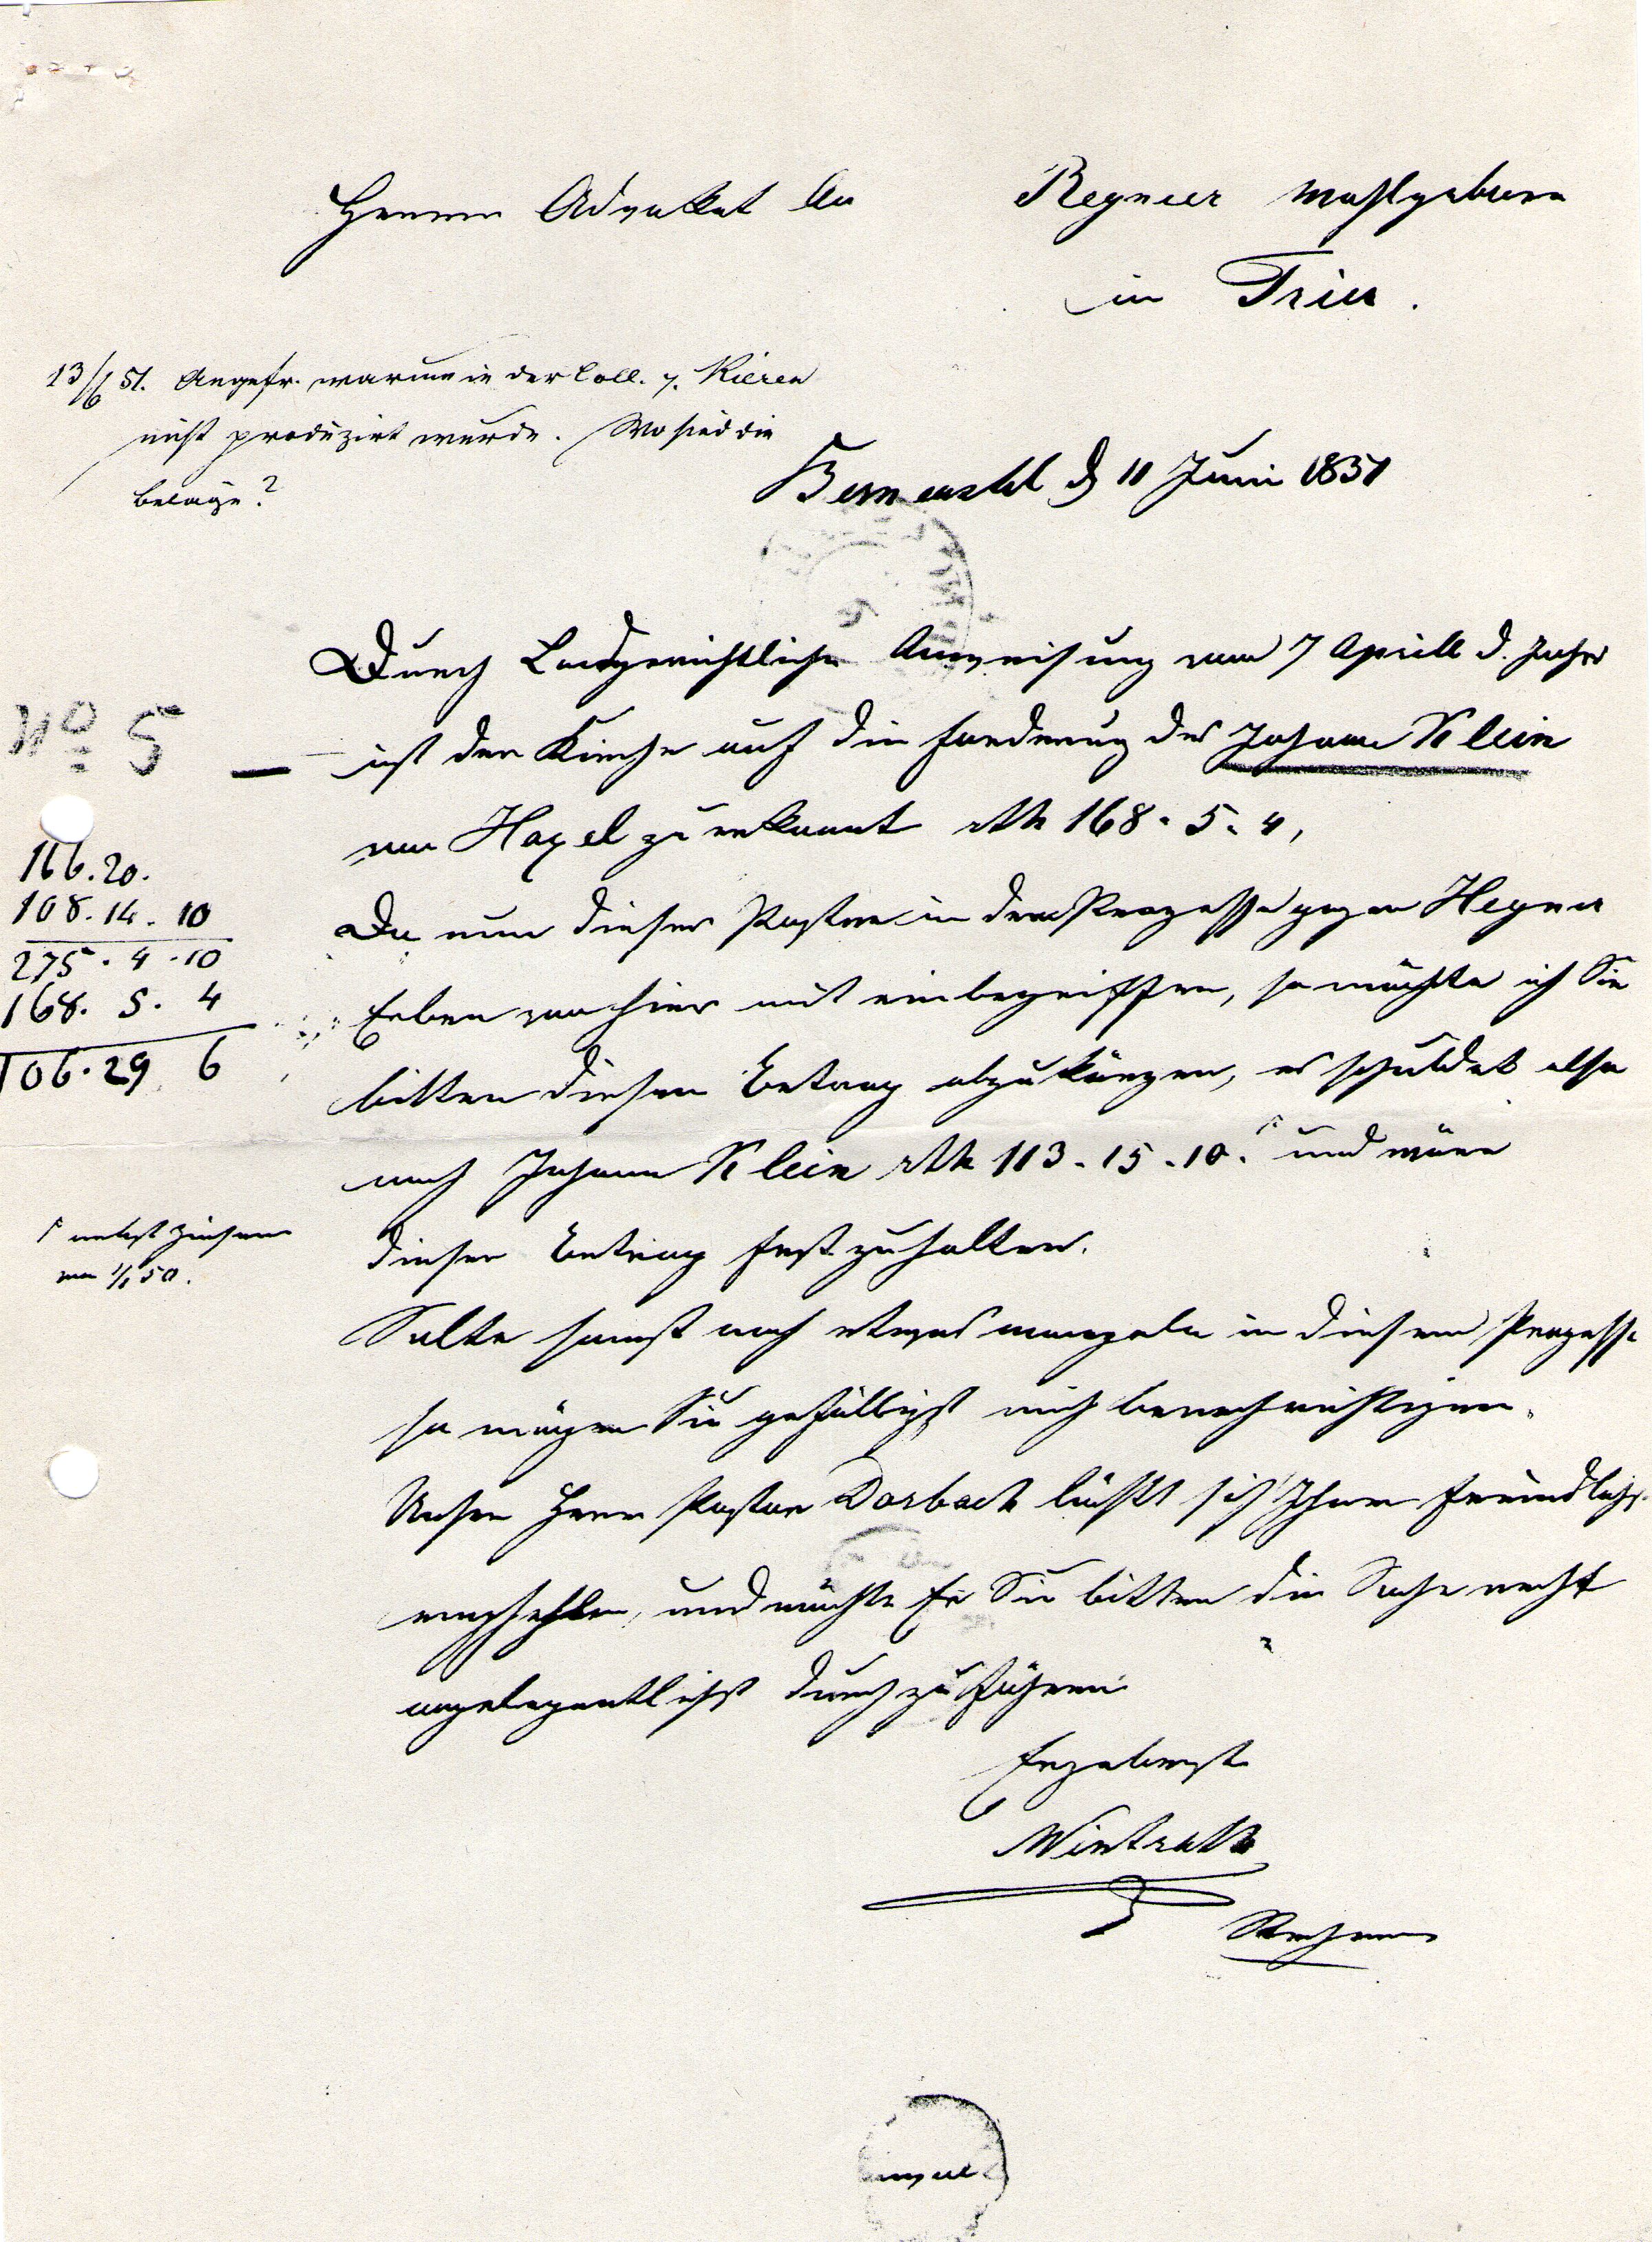 Herrn Advokat An
Regnier Wohlgeboren
in Trier.
13/6 51. Angefr. warum in der Coll. g. Kieren
nicht produzirt wurde. Wo sind die
Beläge?
Berncastel d 11 Juni 1851
Durch Landgerichtliche Anweisung vom 7 Aprill d. Jahrs
No 5 — ist der Kirche auf die Forderung des Johann Klein
von Hagel zuerkannt rth 168. 5. 4,
166.20.
108. 14. 10
275. 4. 10
168. 5. 4
106. 29 6
Da nun dieser Posten in dem Prozesse gegen
Erben von hier mit einbegriffen, so möchte ich Sie
bitten diesen Betrag abzukürzen, es schuldet also
noch Johann Klein rth 113. 15. 10. ┌ und wäre
┌ nebst Zinsen
von 1/1 50.
dieser Betrag fest zu halten.
Solte sonst noch etwas mangeln in diesem Prozesse
so mögen Sie gefälligst mich benachrichtigen.
Unser Herr Pastor Dorbach läßt sich Ihnen freundlichst
empfehlen, und möchte Er Sie bitten die Sache recht
angelegentlichst durchzuführen
Ergebenst
Wintrath
Rechner